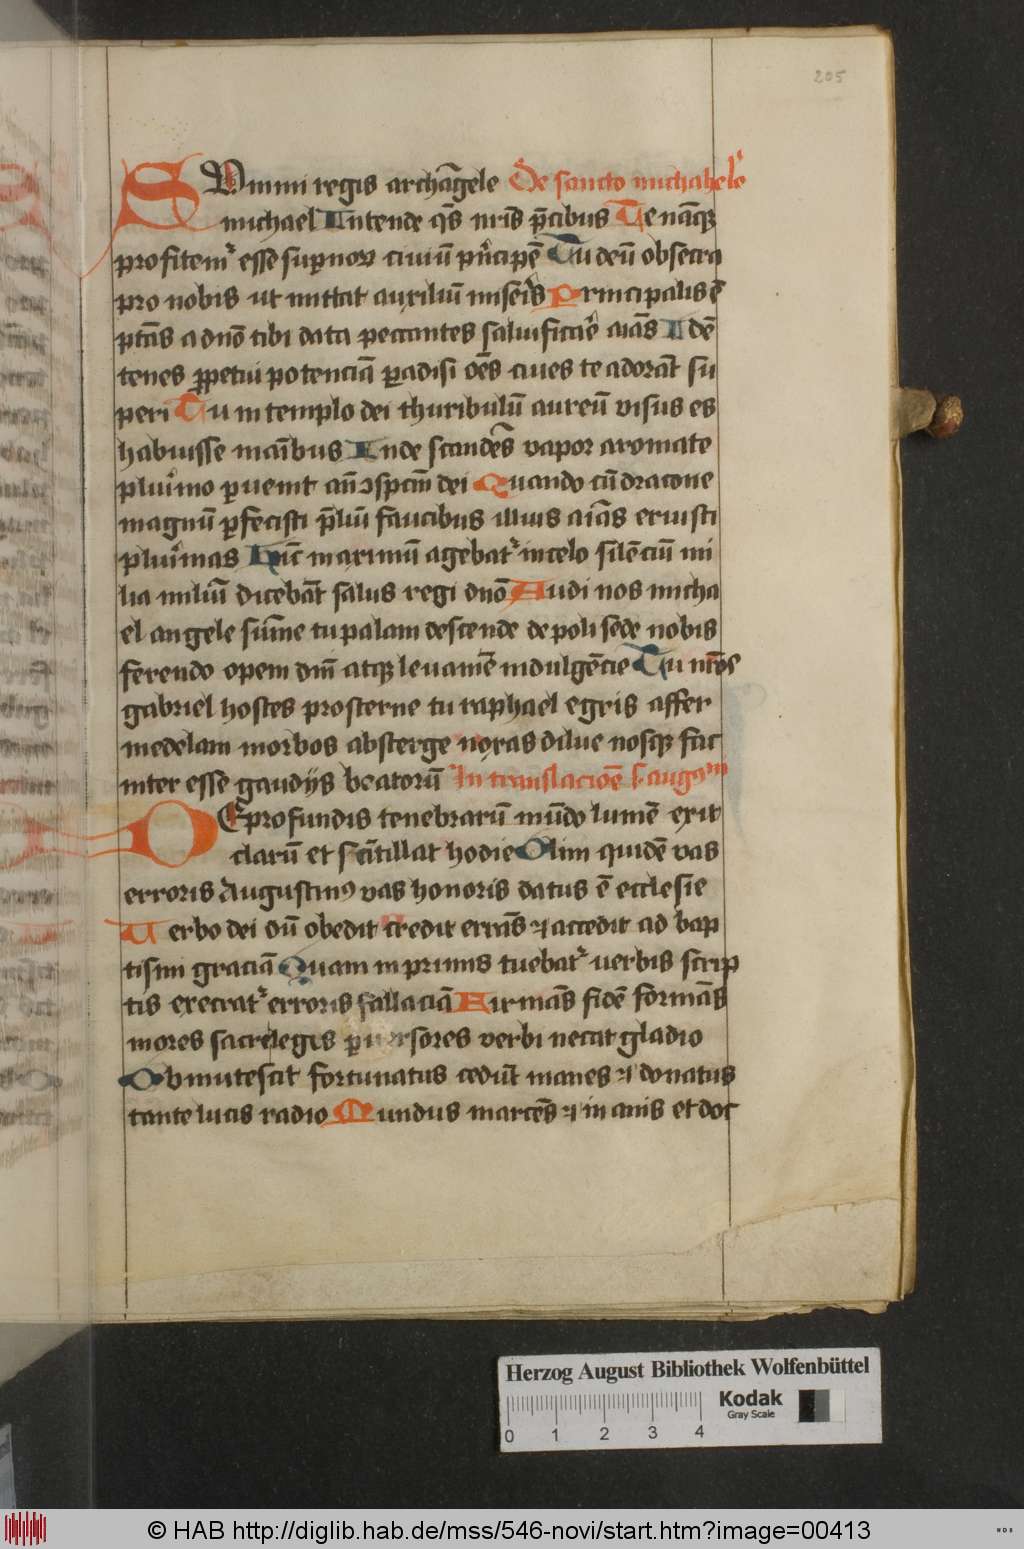 205
SUmmi regis archāgele De sancto michahele
michael Intende q̄s nr̄is p̄cibus Te nāq;
profitem᷑ esse sup̱noꝝ ciuiū pⁱncipē Tu deū obsecra
pro nobis ut mittat auxiliū miseris Principalis ē
ptās a dn̄o tibi data peccantes saluificare aīas Idē
tenes ꝑpetui potenciā ꝑadisi oēs ciues te adorāt su
peri Tu in templo dei thuribulū aureū visus es
habuisse manibus Inde scandēs vapor aromate
plurimo ꝑuenit an̄ ꝯspcm̄ dei Quando cū dracone
magnū ꝑfecisti p̄liū faucibus illius aīas eruisti
plurimas Hinc maximū agebat᷑ in celo silēciū mi
lia miliū dicebāt salus regi dn̄o Audi nos micha
el angele sūme tu palam descende de poli sede nobis
ferendo opem dn̄i atq; leuamē indulgēcie Tu nr̄os
gabriel hostes prosterne tu raphael egris affer
medelam morbos absterge noxas dilue nosq; fac
inter esse gaudijs beatorū In translacioē s augᵐ
DE profundis tenebrarū mūdo lumē exit
clarū et scītillat hodie Olim quidē vas
erroris Augustinꝰ vas honoris datus ē ecclesie
Uerbo dei dū obedit credit errās ⁊ accedit ad bap
tismi graciā Quam in primis tuebat᷑ verbis scrip
tis execrat᷑ erroris fallaciā Firmās fidē formās
mores sacreleges ꝑuersores verbi necat gladio
Obmutescit fortunatus cedūt manes ⁊ donatus
tante lucis radio Mundus marcēs ⁊ in anis et doc
Herzog August Bibliothek Wolfenbüttel
Kodak
Gray Scale
0 1 2 3 4
© HAB http://diglib.hab.de/mss/546-novi/start.htm?image=00413